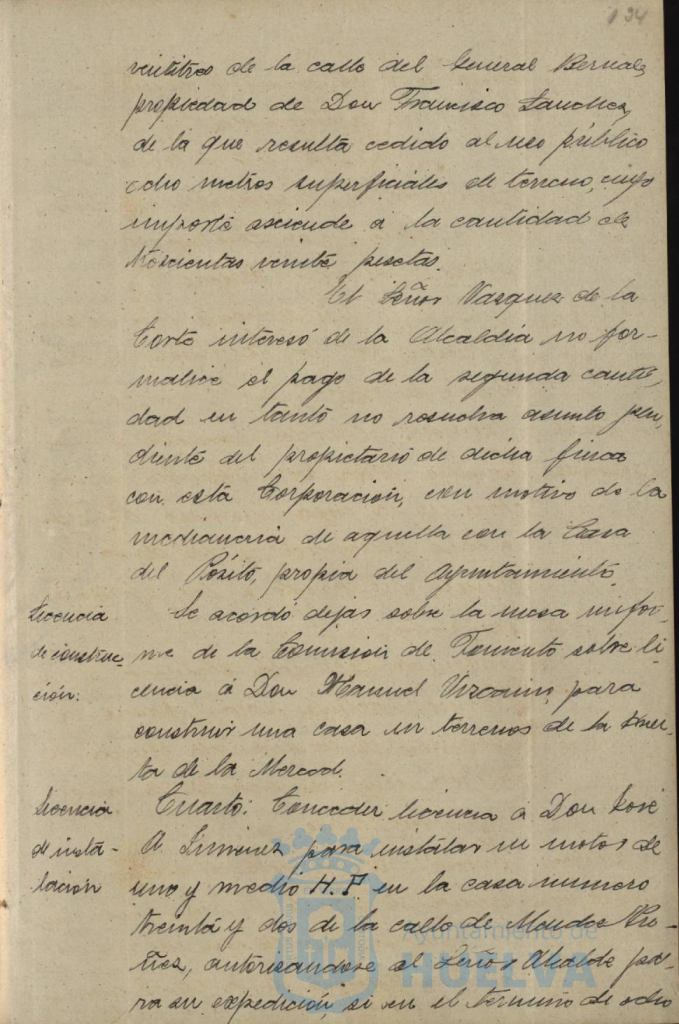 194
veintitres de la calle del General Bernal,
propiedad de Don Francisco Sanchez,
de la que resulta cedido al uso público
ocho metros superficiales de terreno, cuyo
importe asciende a la cantidad de
trescientas veinte pesetas.
El Señor Vazquez de la
Corte interesó de la Alcaldía no for-
malice el pago de la segunda canti-
dad en tanto no resuelva asunto pen-
diente del propietario de dicha finca
con esta Corporación, con motivo de la
medianeria de aquella con la Casa
del Pósito, propia del Ayuntamiento.
Licencia
de construc-
ción.
Se acordó dejar sobre la mesa infor-
me de la Comision de Fomento sobre li-
cencia á Don Manuel Vizcaino, para
construir una casa en terrenos de la Huer-
ta de la Merced.
Licencia
de insta-
lación
Cuarto: Conceder licencia á Don José
A. Jimenez para instalar un motor de
uno y medio H.P en la casa numero
treinta y dos de la calle de Mendez Nu-
ñez, autorizandose al Señor Alcalde pa-
ra su expedición, si en el termino de ocho
Ayuntamiento de
HUELVA